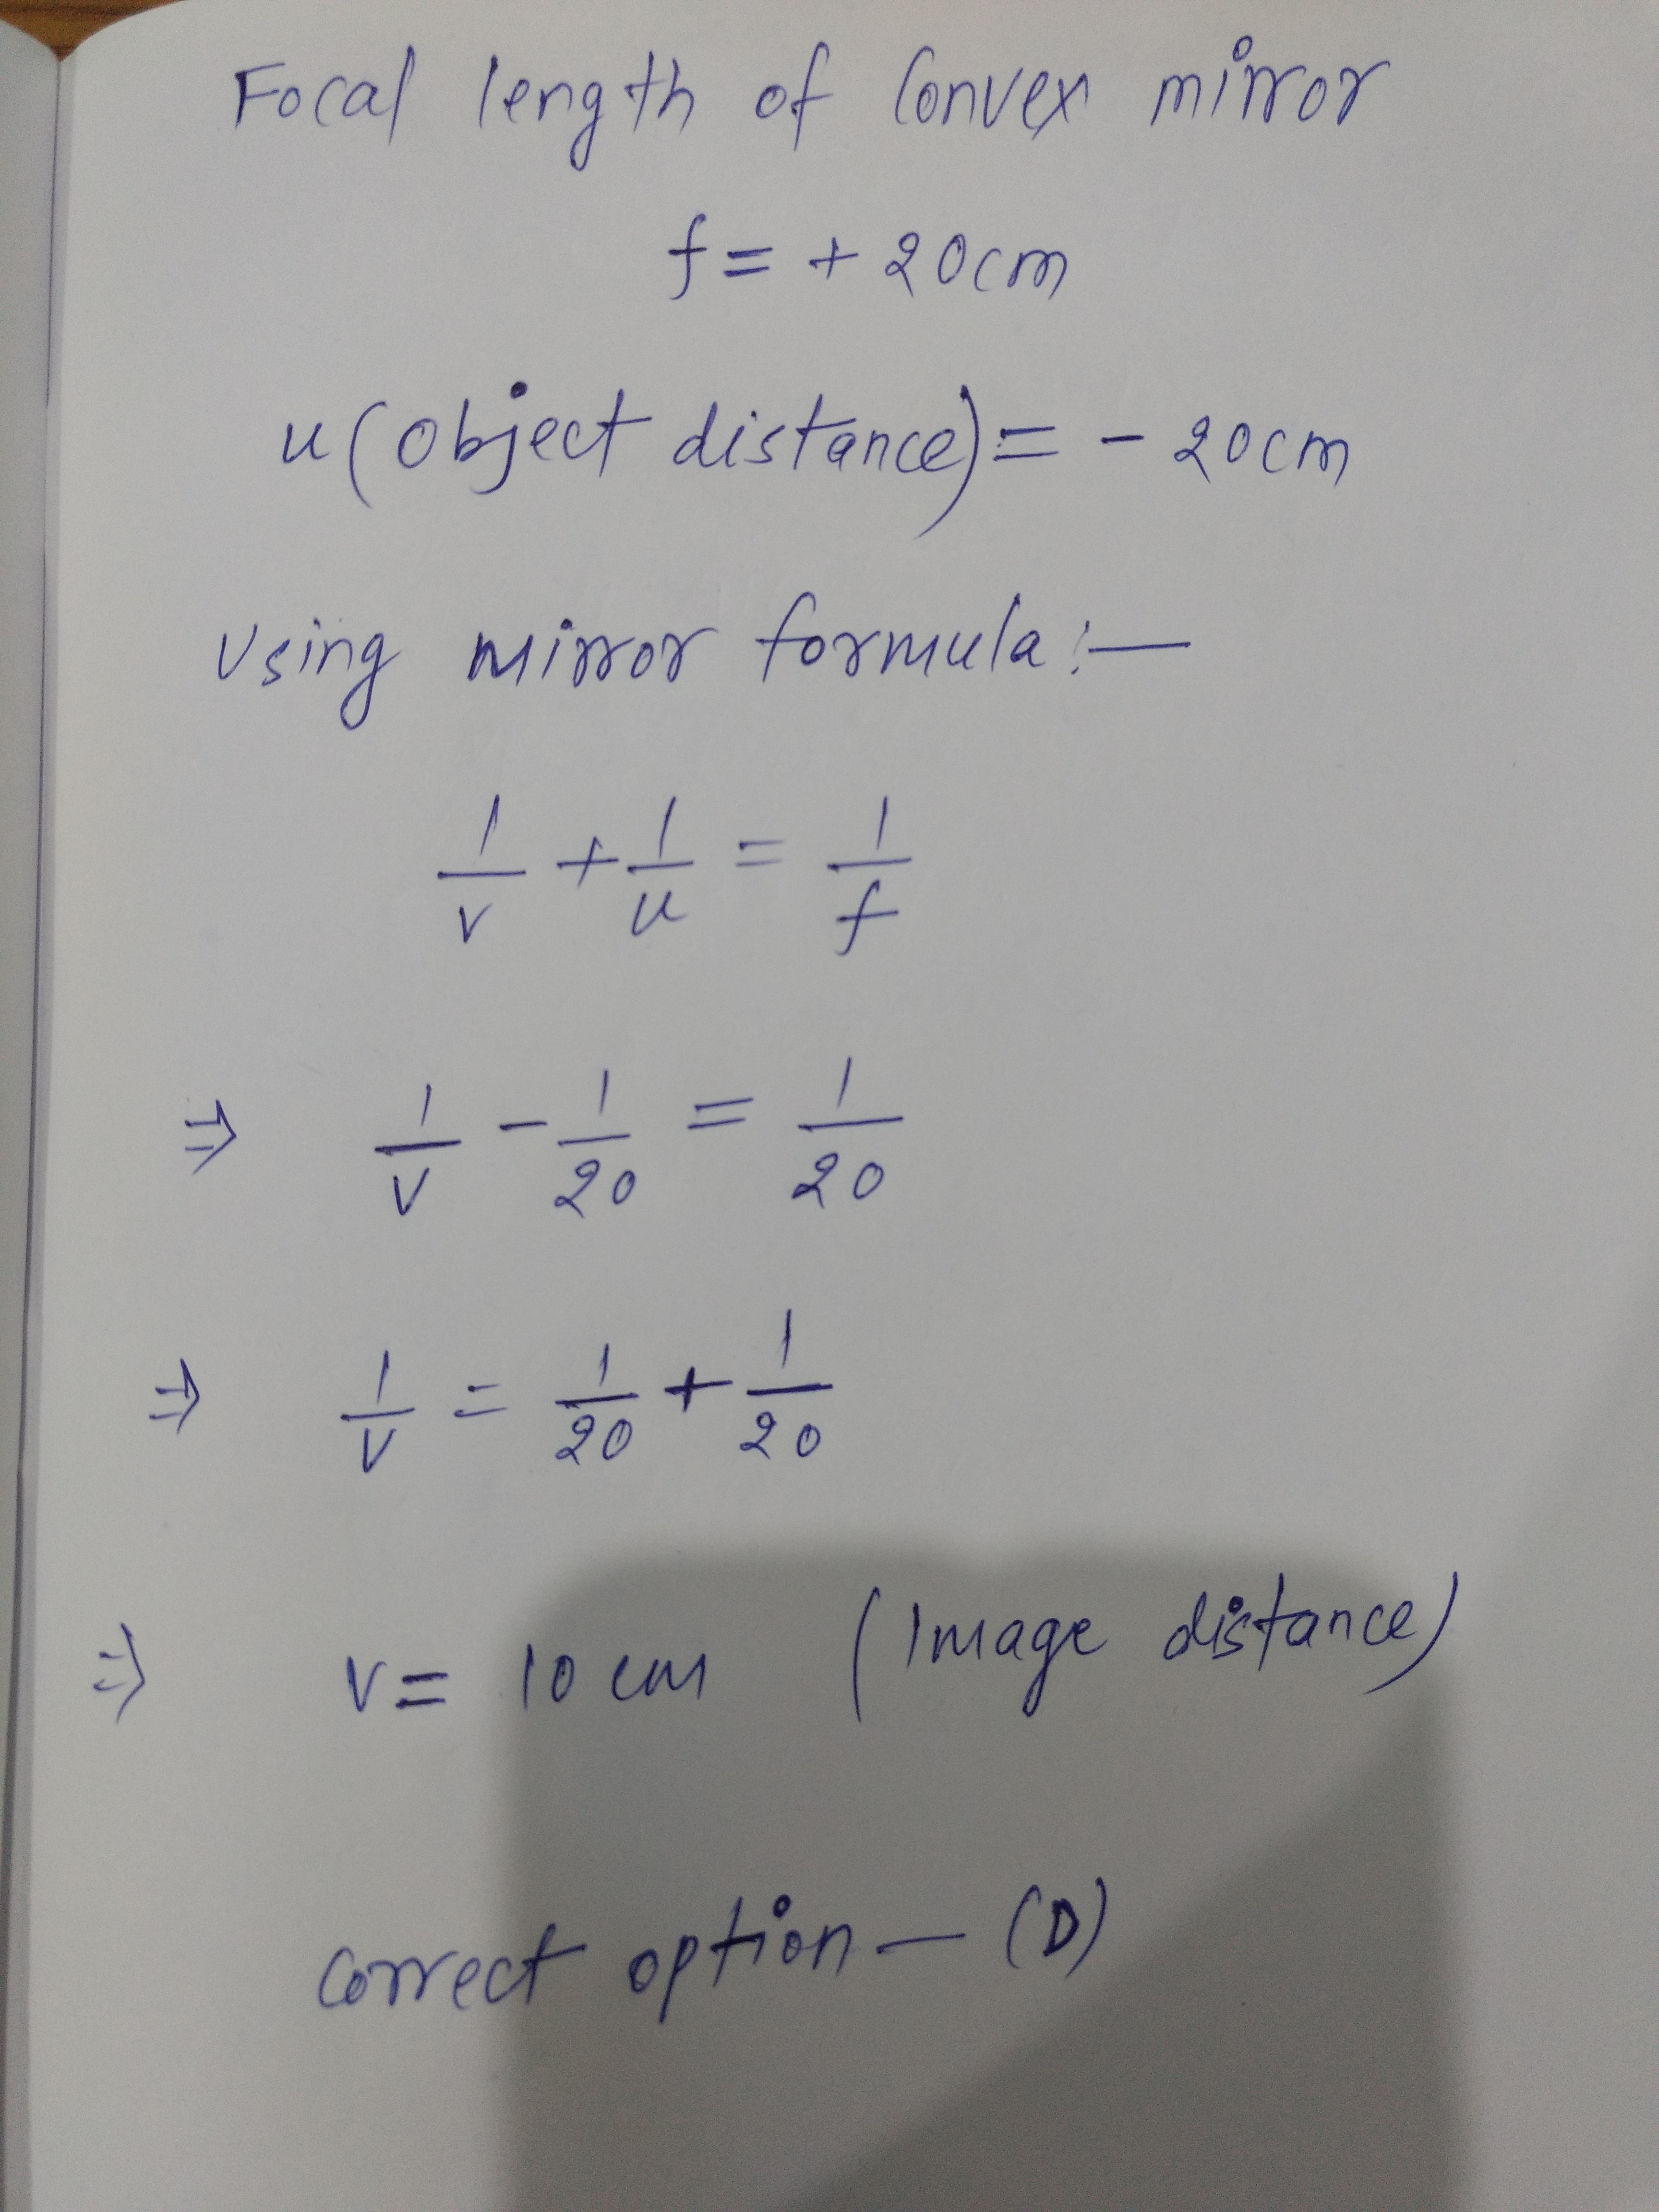 Focal length of Convex mirror
f = + 20cm
u (object distance) = - 20cm
Using mirror formula :—
1/v + 1/u = 1/f
⇒ 1/v - 1/20 = 1/20
⇒ 1/v = 1/20 + 1/20
⇒ v = 10 cm (Image distance)
correct option — (D)